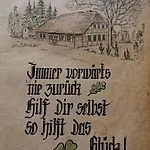 Immer vorwärts
nie zurück
Hilf Dir selbst
so hilft das
Glück!